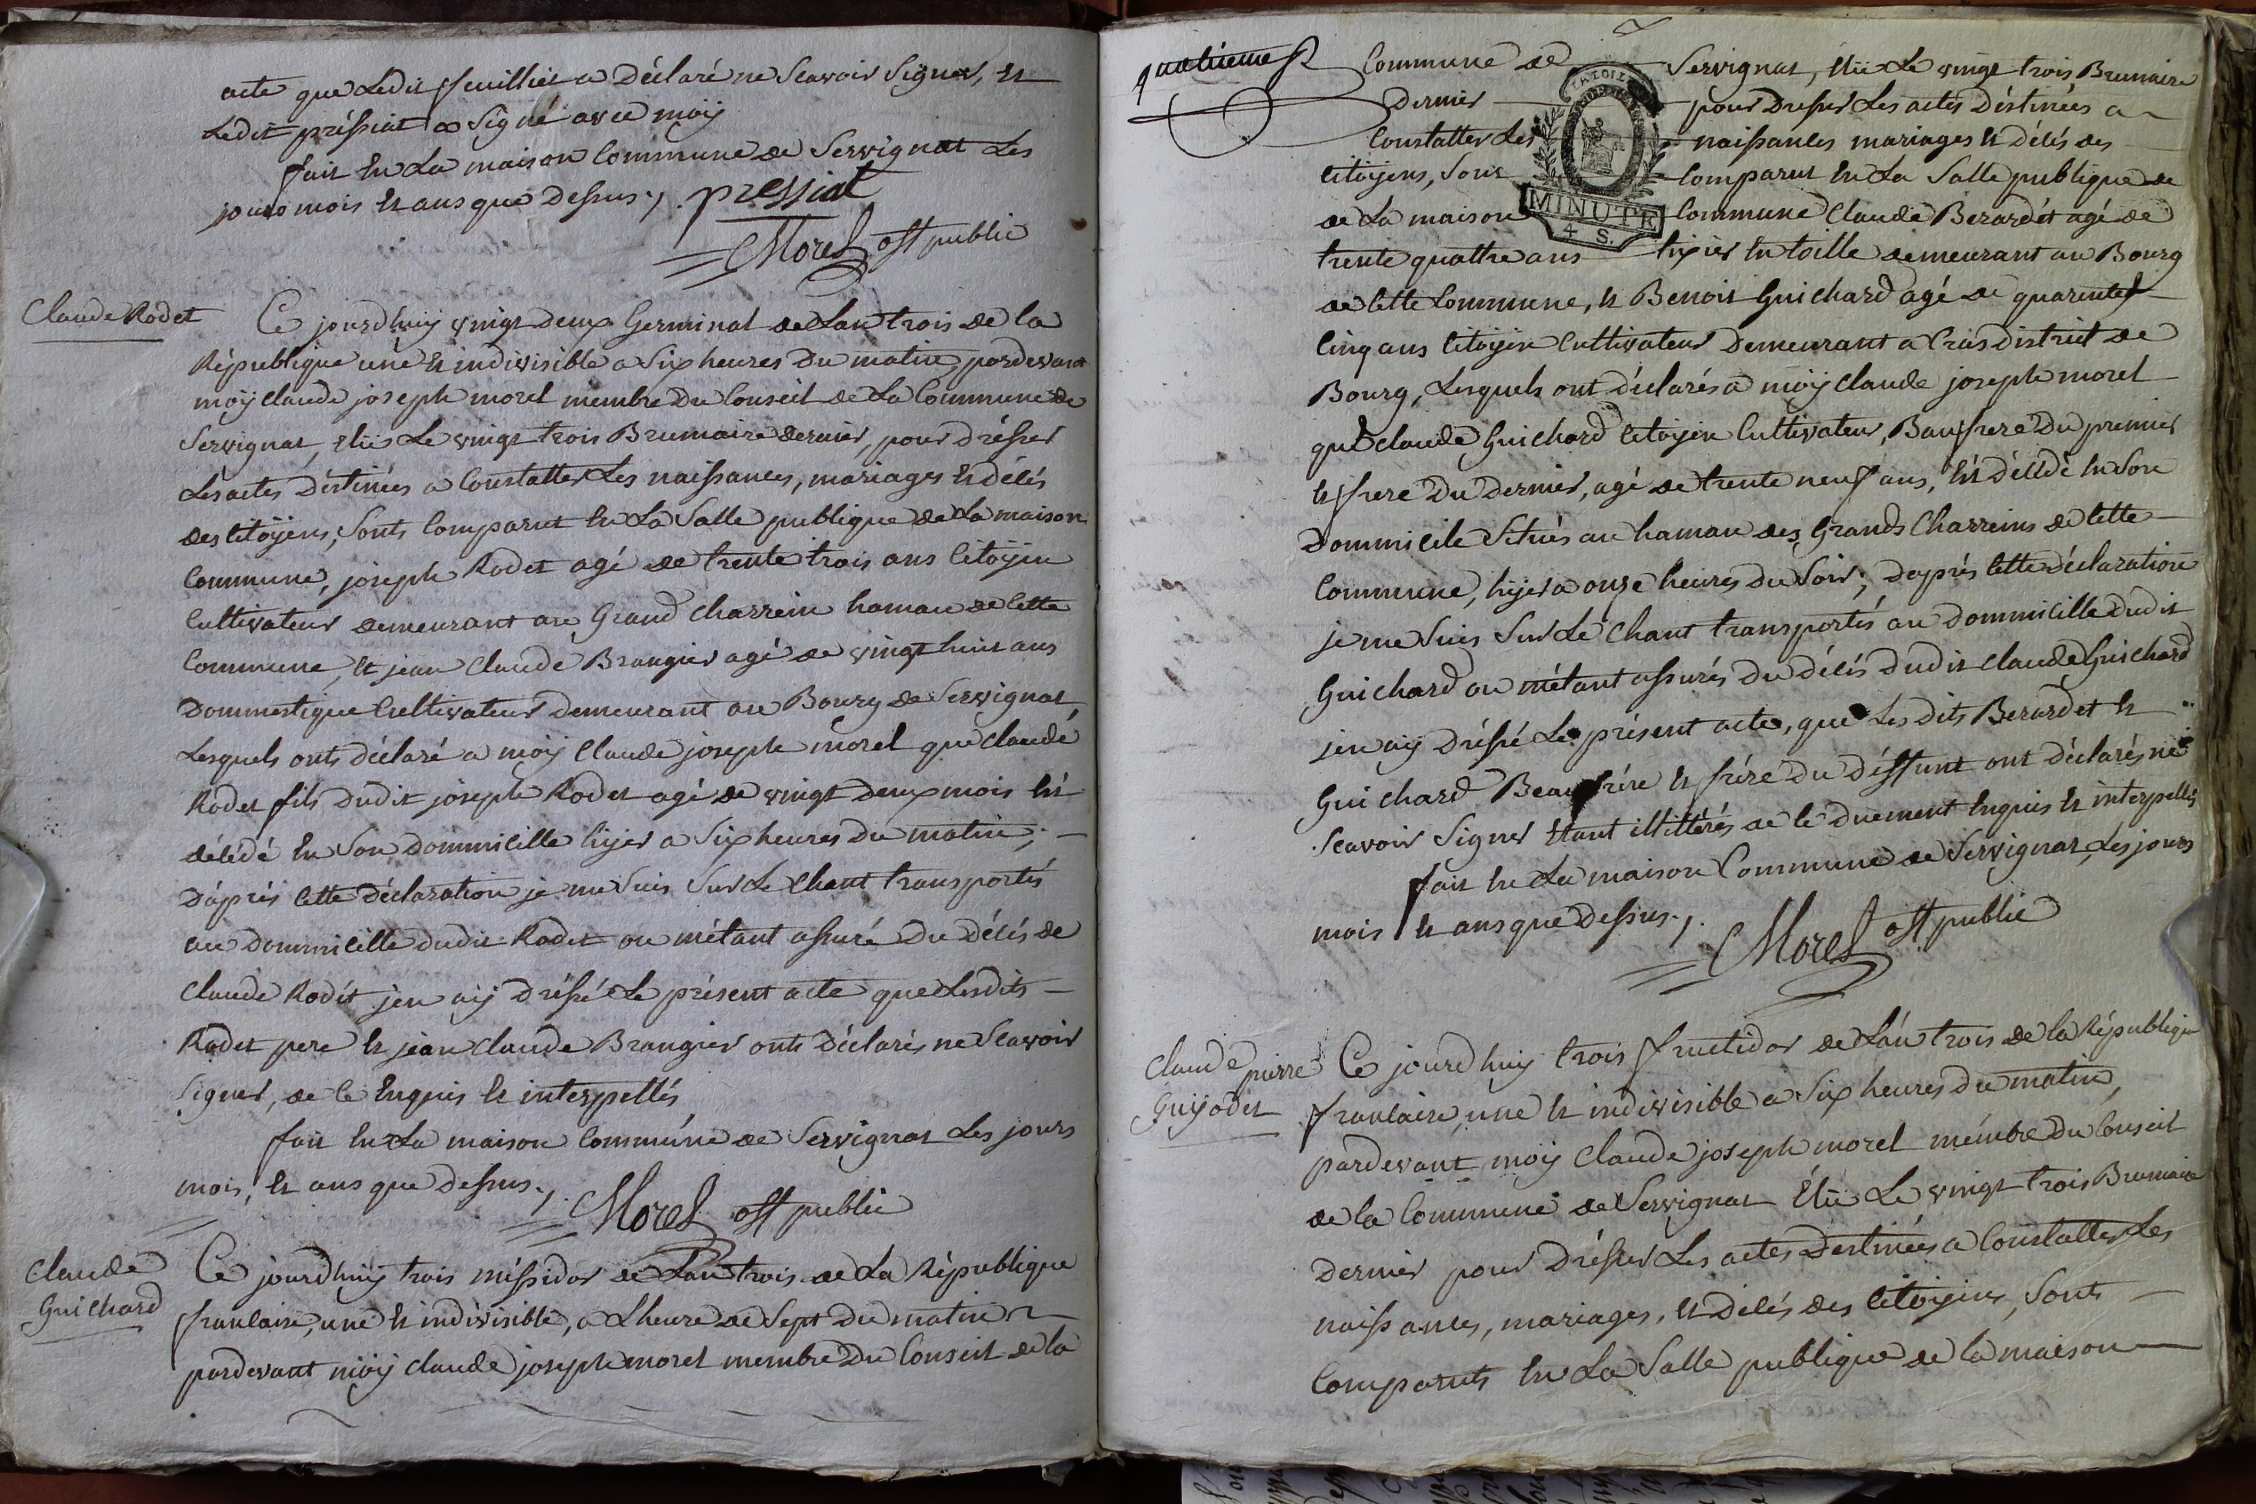 acte que Ledit feuilliet a Déclaré ne Scavoir Signer, et
Ledit préssiat a Signé avec moÿ
fait en La maison Commune de Servignat Les
jours mois et ans que Dessus ./. pressiat
Morel off public
Claude Rodet
Ce jourdhuÿ vingt deux Germinal de Lan trois de la
République une et indivisible a Six heures Du matin, pardevant
moÿ Claude joseph morel membre Du Conseil de La Commune de
Servignat, Elüe Le vingt trois Brumaire dernier, pour Drésser
Les actes Déstinées a Constatter Les naissances, mariages et délés
des Citoÿens, Sonts Comparut en La Salle publique de La maison
Commune, joseph Rodet agé de trente trois ans Citoÿen
Cultivateur demeurant au Grand Charrein hamau de Cette
Commune, et jean Claude Braugier agé de vingt huit ans
Dommestique Cultivateur demeurant au Bourg de Servignat
Lesquels onts déclaré a moÿ Claude joseph morel que Claude
Rodet fils Dudit joseph Rodet agé de vingt Deux mois Et
délédé en Son Dommicille hÿer a Six heures Du matin ;
Daprés Cette Déclaration je me Suis Sur Le Chant transportés
au Dommicille dudit Rodet ou métant assuré Du Délés de
Claude Rodet jen aÿ Dréssé Le présent acte que Lesdits
Rodet pere et jean Claude Braugier onts Déclarés ne Scavoir
Signer, de Ce Enquis et interpellés
fait en La maison Commune de Servignat Les jours
mois, et ans que Dessus ./. Morel off public
Claude
Guichard
Ce jourdhuÿ trois méssidor de Lan trois de La République
francaise, une et indivisible, a Lheure de Sept Du matin
pardevant moÿ Claude joseph morel membre Du Conseil de la
quatrieme f
Commune de Servignat, Elüe Le vingt trois Brumaire
Dernier pour Dresser Les actes Déstinées a
Constatter Les naissances mariages et délés des
Citoÿens, Sont Comparut en La Salle publique de
de La maison Commune Claude Berardet agé de
MINUTE
4 S.
trente quattre ans tixier en toille demeurant au Bourg
de Cette Commune, et Benoit Guichard agé de quarente
Cinq ans Citoÿen Cultivateur Demeurant a Cras District de
Bourg, Lesquels ont déclarés a moÿ Claude joseph morel
que Claude Guichard Citoÿen Cultivateur, Baufrere Du premier
et frere Du Dernier, agé de trente neuf ans, Et délédé en Son
Dommicile Situés au hamau des Grands Charreins de Cette
Commune, hÿer a onze heures Du Soir ; Daprés Cette déclaration
je me Suis Sur Le Chant transportés au Dommicille Dudit
Guichard ou métant assurés Du délés Dudit Claude Guichard
jen aÿ Dréssé Le présent acte, que Les dits Berardet et
Guichard Beaufrére et frére Du Déffunt ont déclarés ne
Scavoir Signer Etant illittérés de Ce Duement Enquis et interpellés
fait en La maison Commune de Servignat, Les jours
mois et ans que Dessus ./. Morel off public
Claude pierre
Guÿodet
Ce jourdhuÿ trois fructidor de Lan trois de la République
francaise, une et indivisible a Six heures Du matin,
pardevant moÿ Claude joseph morel membre Du Conseil
de la Commune de Servignat Elüe Le vingt trois Brumaire
Dernier pour Drésser Les actes Destinées a Constatter Les
naissances, mariages, et Délés des Citoÿens, Sonts
Comparuts en La Salle publique de la maison